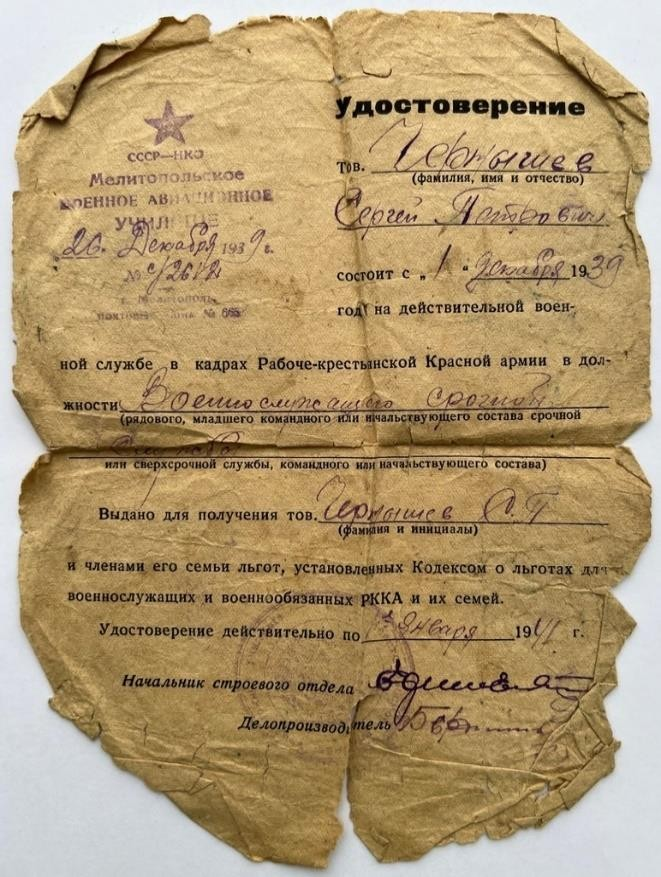 СССР—НКО
Мелитопольское
ВОЕННОЕ АВИАЦИОННОЕ
УЧИЛИЩЕ
„26„ Декабря 1939 г.
№
г. Мелитополь
почтовый ящик №
Удостоверение
Тов. Чернышев
(фамилия, имя и отчество)
Сергей Петрович
состоит с „1“ декабря 1939
год на действительной воен-
ной службе в кадрах Рабоче-крестьянской Красной армии в дол-
жности Военнослужащего срочной
(рядового, младшего командного или начальствующего состава срочной
службы
или сверхсрочной службы, командного или начальствующего состава)
Выдано для получения тов. Чернышев С. П
(фамилия и инициалы)
и членами его семьи льгот, установленных Кодексом о льготах для
военнослужащих и военнообязанных РККА и их семей.
Удостоверение действительно по 1е Января 1941 г.
Начальник строевого отдела
Делопроизводитель